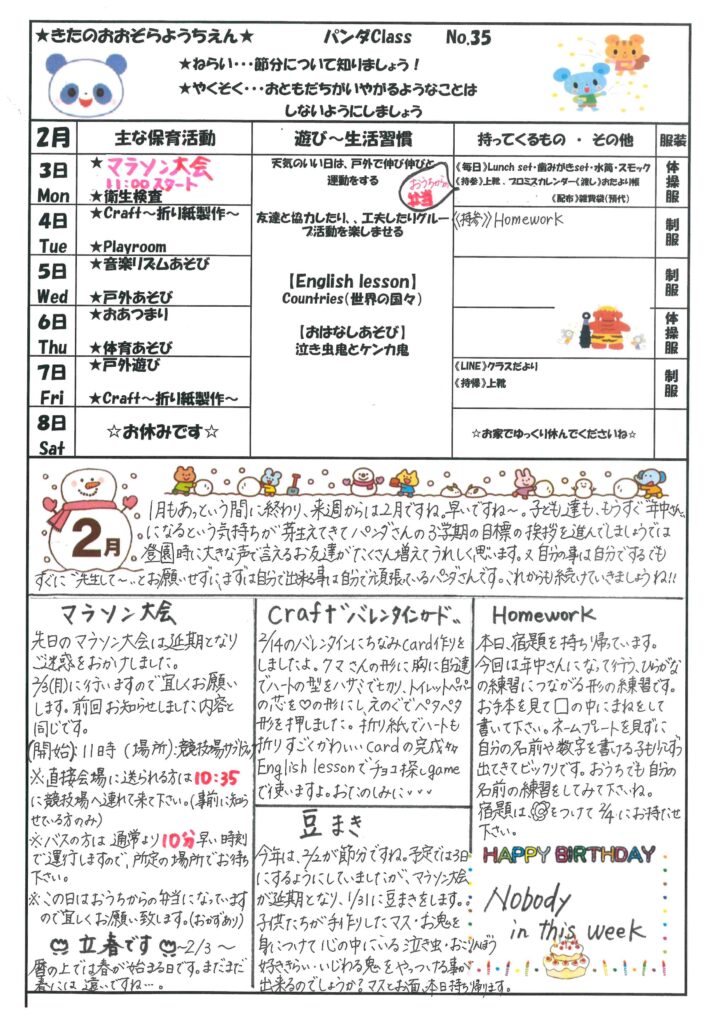 ★きたのおおぞらようちえん★　パンダClass　No.35
★ねらい・・・節分について知りましょう！
★やくそく・・・おともだちがいやがるようなことは
しないようにしましょう
2月　主な保育活動　遊び～生活習慣　持ってくるもの ・ その他　服装
3日
Mon
★マラソン大会
11:00スタート
★衛生検査
天気のいい日は、戸外で伸び伸びと
運動をする
おうちからの
弁当
《毎日》Lunch set・歯みがきset・水筒・スモック
《持参》上靴、プロミスカレンダー《渡し》おたより帳
《配布》雑貨袋（預代）
体操服
4日
Tue
★Craft～折り紙製作～
★Playroom
友達と協力したり、、工夫したりグルー
プ活動を楽しませる
《持参》Homework
制服
5日
Wed
★音楽リズムあそび
★戸外あそび
【English lesson】
Countries（世界の国々）
制服
6日
Thu
★おあつまり
★体育あそび
【おはなしあそび】
泣き虫鬼とケンカ鬼
体操服
7日
Fri
★戸外遊び
★Craft～折り紙製作～
《LINE》クラスだより
《持帰》上靴
制服
8日
Sat
☆お休みです☆
☆お家でゆっくり休んでくださいね☆
2月
1月もあっという間に終わり、来週からは2月ですね。早いですね～。子ども達も、もうすぐ年中さん
になるという気持ちが芽生えてきてパンダさんの3学期の目標の挨拶を進んでしましょうでは
登園時に大きな声で言えるお友達がたくさん増えてうれしく思います。又自分の事は自分でするでも
すぐに“先生して～”とお願いせずに、まずは自分で出来る事は自分で頑張っているパンダさんです。これからも続けていきましょうね!!
マラソン大会
先日のマラソン大会は延期となり
ご迷惑をおかけしました。
2/3(月)に行いますので宜しくお願い
します。前回お知らせしました内容と
同じです。
(開始):11時 (場所):競技場サブトラック
※直接会場に送られる方は10:35
に競技場へ連れて来て下さい。(事前に知ら
せている方のみ)
※バスの方は通常より10分早い時刻
で運行しますので、所定の場所でお待ち
下さい。
※この日はおうちからの弁当になっています
ので宜しくお願い致します。(おかずあり)
立春です ～2/3～
暦の上では春が始まる日です。まだまだ
春には遠いですね…。
Craft“バレンタインカード”
2/14のバレンタインにちなみcard作りを
しましたよ。クマさんの形に胸に自分達
でハートの型をハサミで切り、トイレットペーパー
の芯を♡の形にし、えのぐでペタペタ
形を押しました。折り紙でハートも
折りすごくかわいいcardの完成♪♪
English lessonでチョコ探しgame
で使いますよ。おたのしみに・・・
豆まき
今年は、2/2が節分ですね。予定では3日
にするようにしていましたが、マラソン大会
が延期となり、1/31に豆まきをします。
子供たちが手作りしたマス・お鬼を
身につけて心の中にいる泣き虫・おこりんぼう
好ききらい・いじわる鬼をやっつける事が
出来るのでしょうか？マスとお面、本日持ち帰ります。
Homework
本日、宿題を持ち帰っています。
今回は年中さんになって行う、ひらがな
の練習につながる形の練習です。
お手本を見て□の中にまねをして
書いて下さい。ネームプレートを見ずに
自分の名前や数字を書ける子も少しずつ
出てきてビックリです。おうちでも自分の
名前の練習をしてみて下さいね。
宿題は、をつけて2/4にお持たせ
下さい。
HAPPY BIRTHDAY
Nobody
in this week